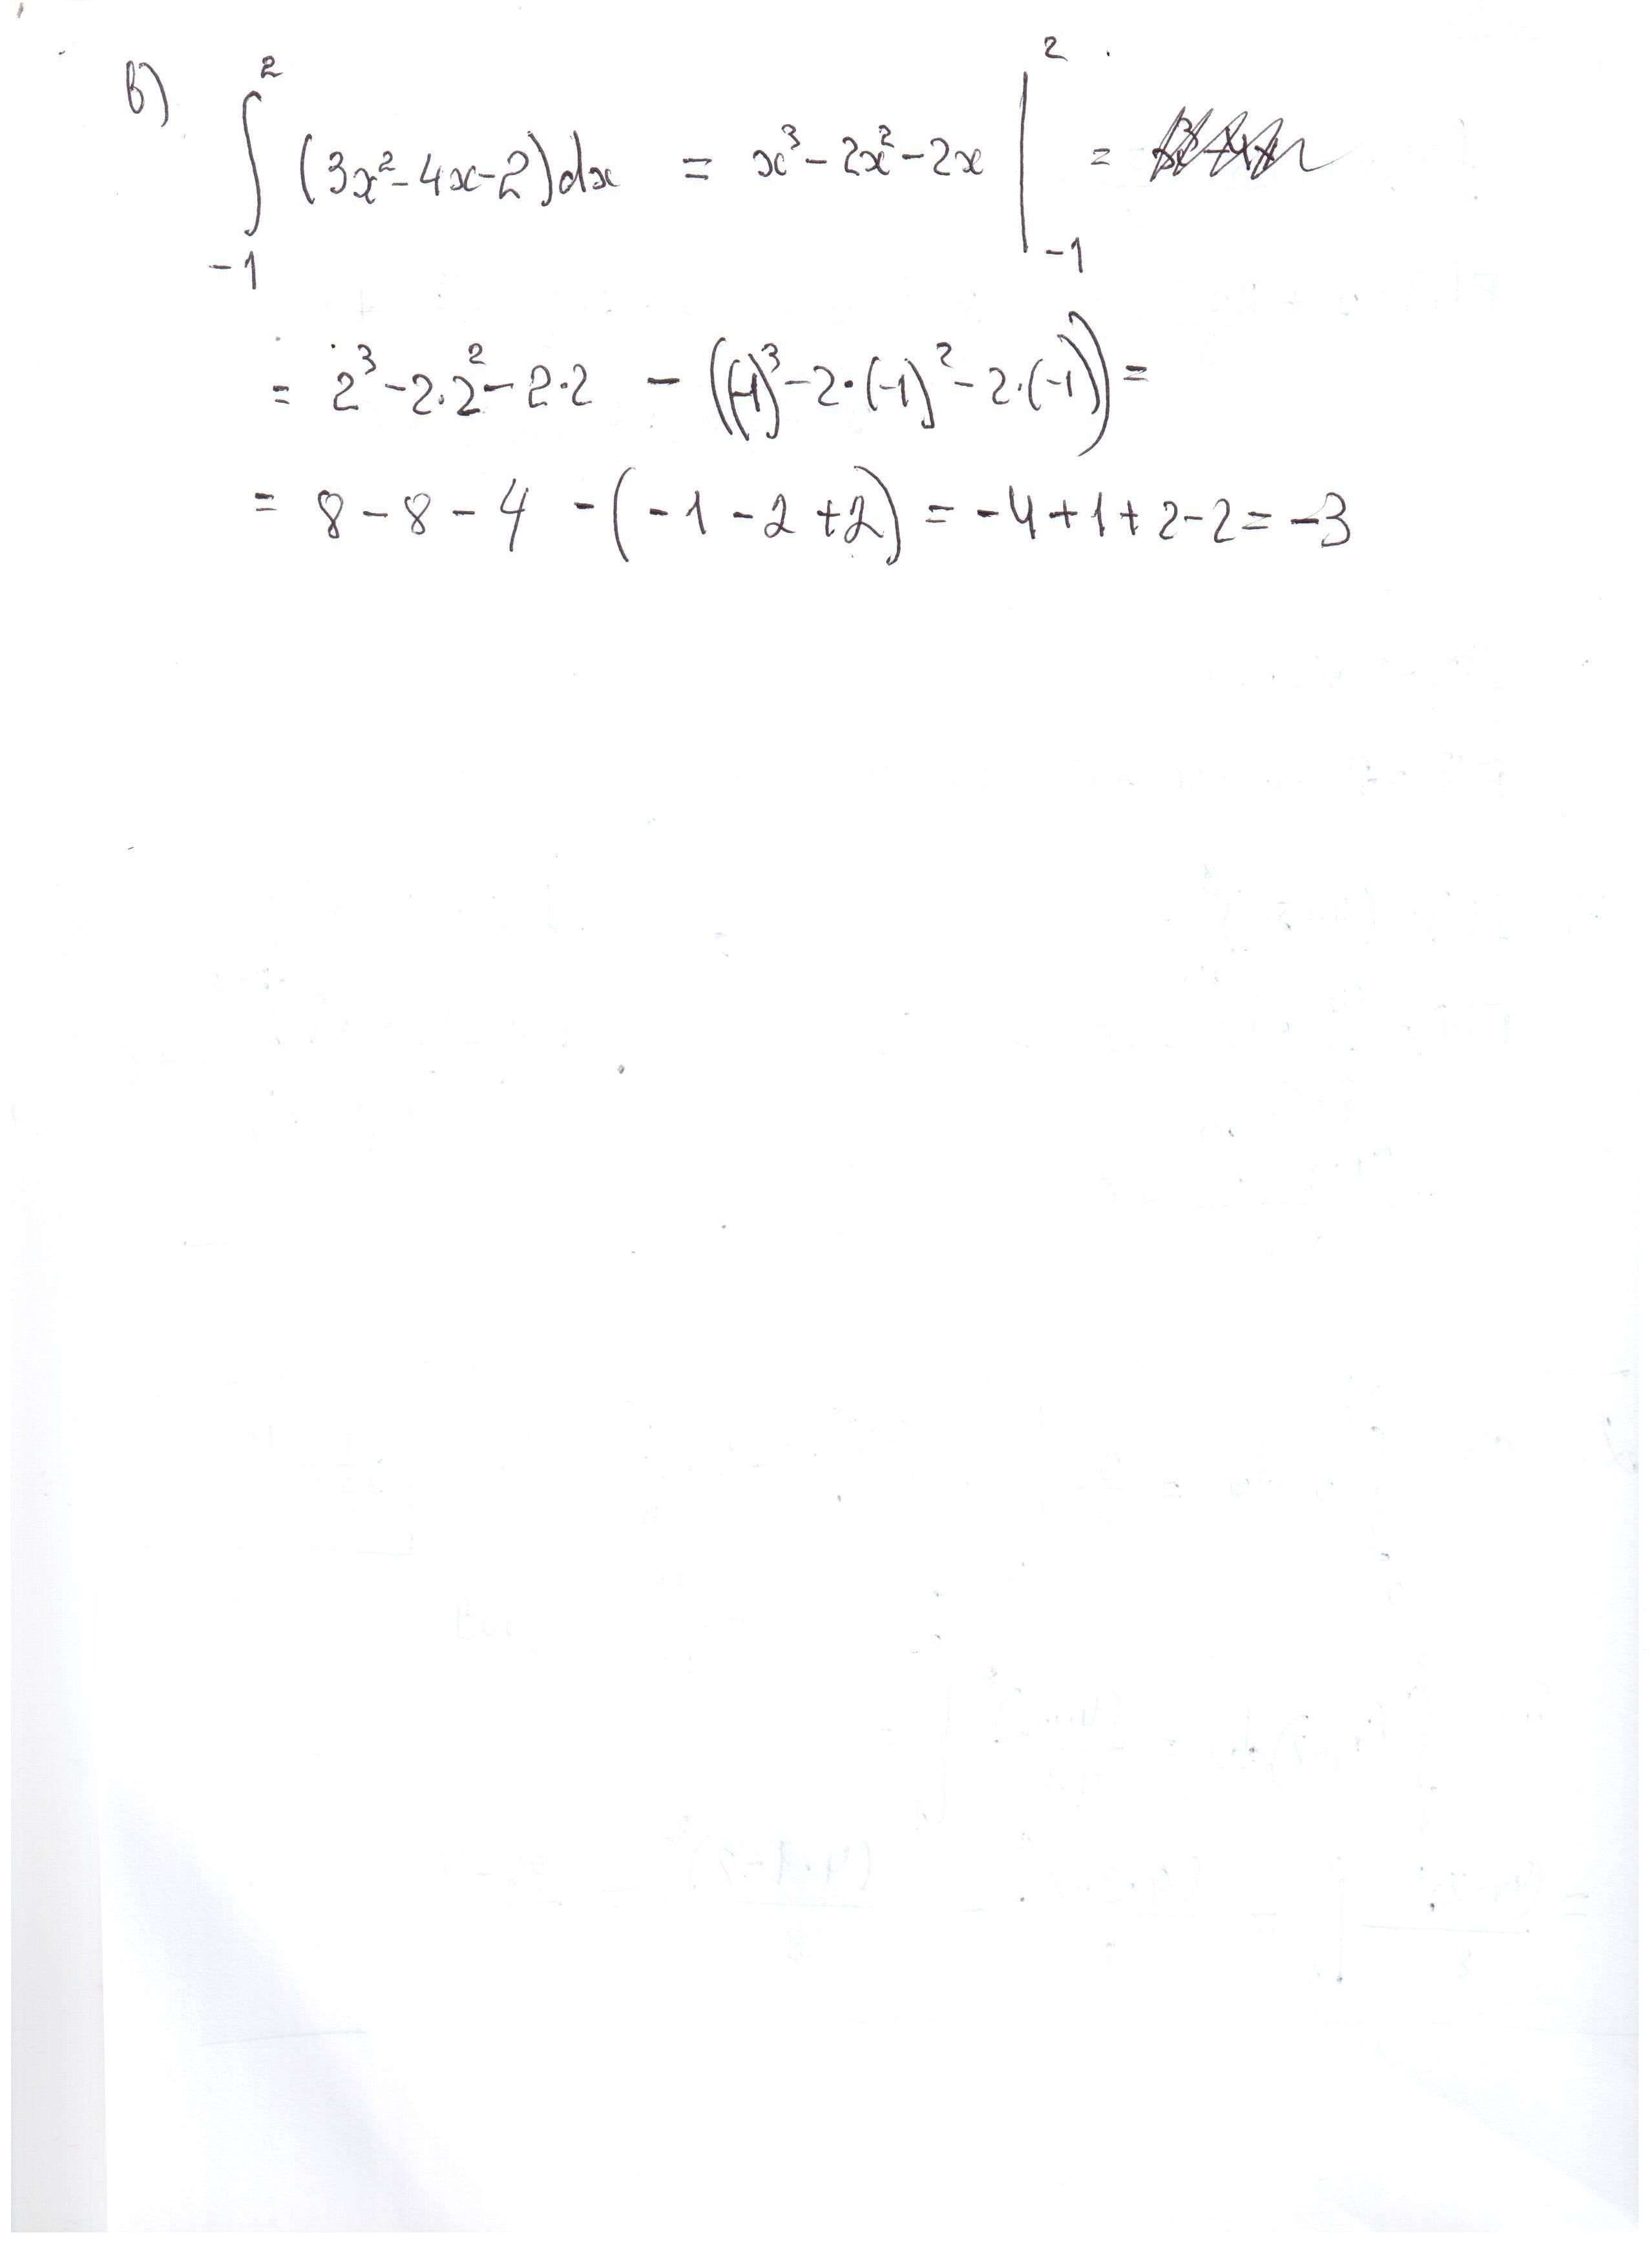 в) ∫₋₁² (3x²-4x-2)dx = x³-2x²-2x |₋₁² =
= 2³-2·2²-2·2 - ((-1)³-2·(-1)²-2·(-1)) =
= 8-8-4 -(-1-2+2) = -4+1+2-2= -3